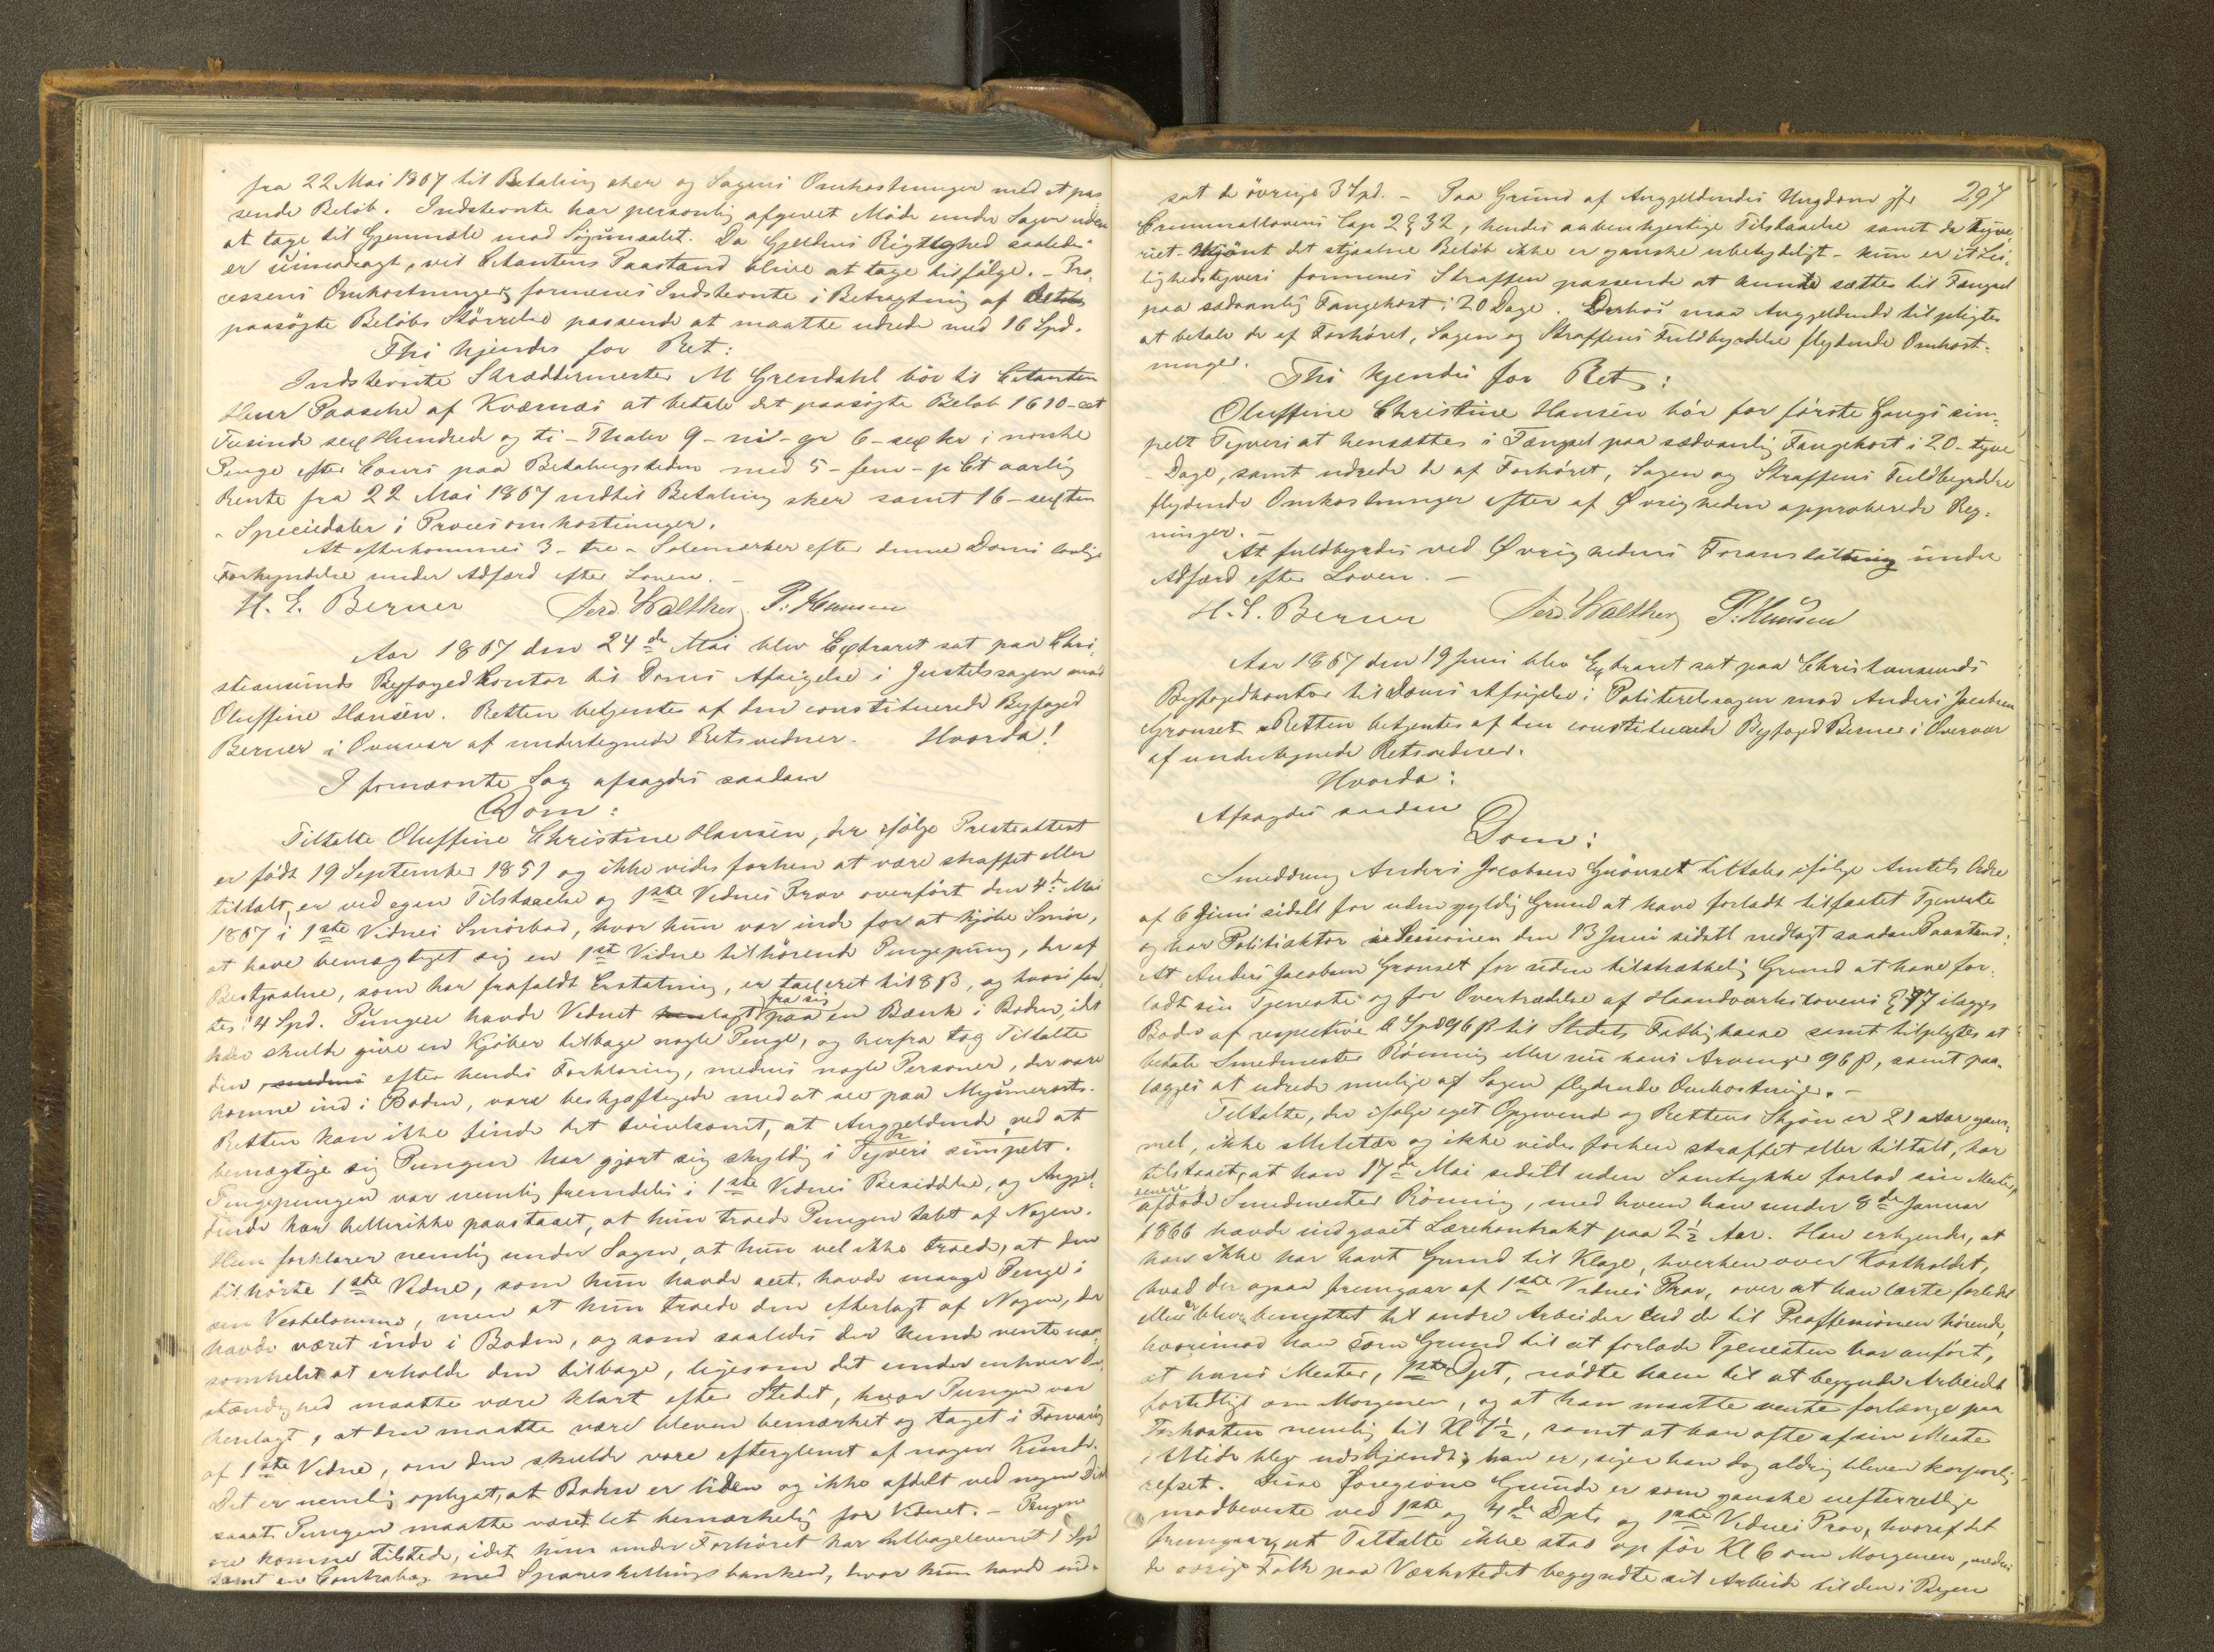 fra 22 Mai 1867 til Betaling sker og Sagens Omkostninger med et pas-
sende Beløb. Indstevnte har personlig afgivet Møde under Sagen uden
at tage til Gjenmæle mod Søgsmaalet. Da Gjeldens Rigtighed saaledes
er uimodsagt, vil Citantens Paastand blive at tage tilfølge. – Pro-
cessens Omkostninger formenes Indstevnte i Betragtning af dets
paasøgte Beløbs Størrelse passende at maatte udrede med 16 Spd.
Thi kjendes for Ret:
Indstevnte Skræddermester M Grendahl bør til Citanten
Paasche af Kværnæs at betale det paasøgte Beløb 1610 – eet
Tusinde sex Hundrede og ti – Thaler 9 – ni – gr 6 – sex i norske
Penge efter Cours paa Betalingstiden med 5 – fem – p Ct aarlig
Rente fra 22 Mai 1867 indtil Betaling sker samt 16 – sexten
– Speciedaler i Procesomkostninger.
At efterkommes 3 – tre – Solemærker efter denne Doms lovlige
Forkyndelse under Adfærd efter Loven. –
H. E. Berner Ferd. Walther P. Hansen
Aar 1867 den 24de Mai blev Extraret sat paa Chri-
stiansunds Bygfogedkontor til Doms Afsigelse i Justitssagen mod
Oluffine Hansen. Retten betjentes af den constituerede Byfoged
Berner i Overvær af undertegnede Retsvidner. Hvorda!
I fornævnte Sag afsagdes saadan
Dom:
Tiltalte Oluffine Christine Hansen, der ifølge Presteattest
er født 19 September 1851 og ikke vides forhen at være straffet eller
tiltalt, er ved egen Tilstaaelse og 1ste Vidnes Prov overført den 4de Mai
1867 i 1ste Vidnes Smørbod, hvor hun var inde for at kjøbe Smør,
at have bemægtiget sig en 1ste Vidne tilhørende Pengepung, der af
Bestjaalne, som har frafaldt Erstatning, er taxeret til 8 β, og hvori fand-
tes 4 Spd. Pungen havde Vidnet lagt fra sig paa en Bænk i Boden, idet
hun skulde give en Kjøber tilbage nogle Penge, og herfra tog Tiltalte
den, medens efter hendes Forklaring, medens nogle Personer, der vare
komne ind i Boden, vare beskjæftigede med at see paa
Retten kan ikke finde det tvivlsomt, at Angjeldende ved at
bemægtige sig Pungen har gjort sig skyldig i Tyveri simpelt.
Pengepungen var nemlig fremdeles i 1ste Vidnes Besiddelse, og Angjel-
dende har hellerikke paastaaet, at hun troede Pungen tabt af Nogen.
Hun forklarer nemlig under Sagen, at hun vel ikke troede, at den
tilhørte 1ste Vidne, som hun havde seet, havde mange Penge i
sin Vestelomme, men at hun troede den efterlagt af Nogen, der
havde været inde i Boden, og som saaledes der kunde vente naar-
somhelst at erholde den tilbage, ligesom det under enhver Om-
stændighed maatte være klart efter Stedet, hvor Pungen var
henlagt, at den maatte være bleven bemærket og taget i Forvaring
af 1ste Vidne, om den skulde være efterglemt af nogen Kunde.
Det er nemlig oplyst, at Boden er liden og ikke afdelt ved nogen Disk
saaat Pungen maatte været let bemærkelig for Vidnet. – Pengene
ere komne tilstede, idet hun under Forhøret har tilbageleveret 1 Spd
samt en Contrabog med Spareskillingsbanken, hvor hun havde ind-
297
sat de øvrige 3 Spd. – Paa Grund af Angjeldendes Ungdom jfr
Criminallovens Cap 2 § 32, hendes aabenhjertige Tilstaaelse samt da Tyve-
riet – skjønt det stjaalne Beløb ikke er ganske ubetydeligt – kun er et Lei-
lighedstyveri formenes Straffen passende at kunde sættes til Fængsel
paa sædvanlig Fangekost i 20 Dage. Derhos maa Angjeldende tilpligtes
at betale de af Forhøret, Sagen og Straffens Fuldbyrdelse flydende Omkost-
ninger.
Thi kjendes for Ret:
Oluffine Christine Hansen bør for første Gangs sim-
pelt Tyveri at hensættes i Fængsel paa sædvanlig Fangekost i 20 – tyve
– Dage, samt udrede de af Forhøret, Sagen og Straffens Fuldbyrdelse
flydende Omkostninger efter af Øvrigheden approberede Reg-
ninger. –
At fuldbyrdes ved Øvrighedens Foranstaltning under
Adfærd efter Loven. –
H. E. Berner Ferd. Walther P. Hansen
Aar 1867 den 19 Juni blev Extraret sat paa Christiansunds
Byfogedkontor til Doms Afsigelse i Politiretssagen mod Anders Jacobsen
Grønset. Retten betjentes af den constituerede Byfoged Berner i Overvær
af undertegnede Retsvidner.
Hvorda:
Afsagdes saadan
Dom:
Smeddreng Anders Jacobsen Grønset tiltales ifølge Amtets Ordre
af 6 Juni sidstl for uden gyldig Grund at have forladt tilfæstet Tjeneste
og har Politiaktor i Sessionen den 13 Juni sidstl nedlagt saadan Paastand:
At Anders Jacobsen Grønset for uden tilstrækkelig Grund at have for-
ladt sin Tjeneste og for Overtrædelse af Haandværkslovens § 77 ilægges
Bøder af respective 6 Spd 96 β til Stedets Fattigkasse samt tilpligtes at
betale Smedmester Rønning eller nu hans Arvinger 96 β, samt paa-
lægges at udrede mulige af Sagen flydende Omkostninger. –
Tiltalte, der ifølge eget Opgivende og Rettens Skjøn er 21 Aar gam-
mel, ikke Militær og ikke vides forhen straffet eller tiltalt, har
tilstaaet, at han 17de Mai sidstl uden Samtykke forlod sin Mester,
senere afdøde Smedmester Rønning, med hvem han under 8de Januar
1866 havde indgaaet Lærekontrakt paa 2½ Aar. Han erkjender, at
han ikke har havt Grund til Klage, hverken over Kostholdet,
hvad der ogsaa fremgaar af 1ste Vidnes Prov, over at han lærte forlidet
eller blev benyttet til andre Arbeider end de til Professionen hørende,
hvorimod han som Grund til at forlade Tjenesten har anført,
at hans Mester, 1ste Dpt, nødte ham til at begynde Arbeidet
fortidligt om Morgenen, og at han maatte vente forlænge paa
Frokosten nemlig til Kl 7½, samt at han ofte af sin Mester
blev udskjændt; han er, siger han dog aldrig bleven korporlig
refset. Disse foregivne Grunde er som ganske uefterrettelige
modbeviste ved 1ste og 4de Dpts og 1ste Vidnes Prov, hvoraf det
fremgaar, at Tiltalte ikke stod op før Kl 6 om Morgenen, medens
de øvrige Folk paa Værkstedet begyndte sit Arbeide til den i Byen